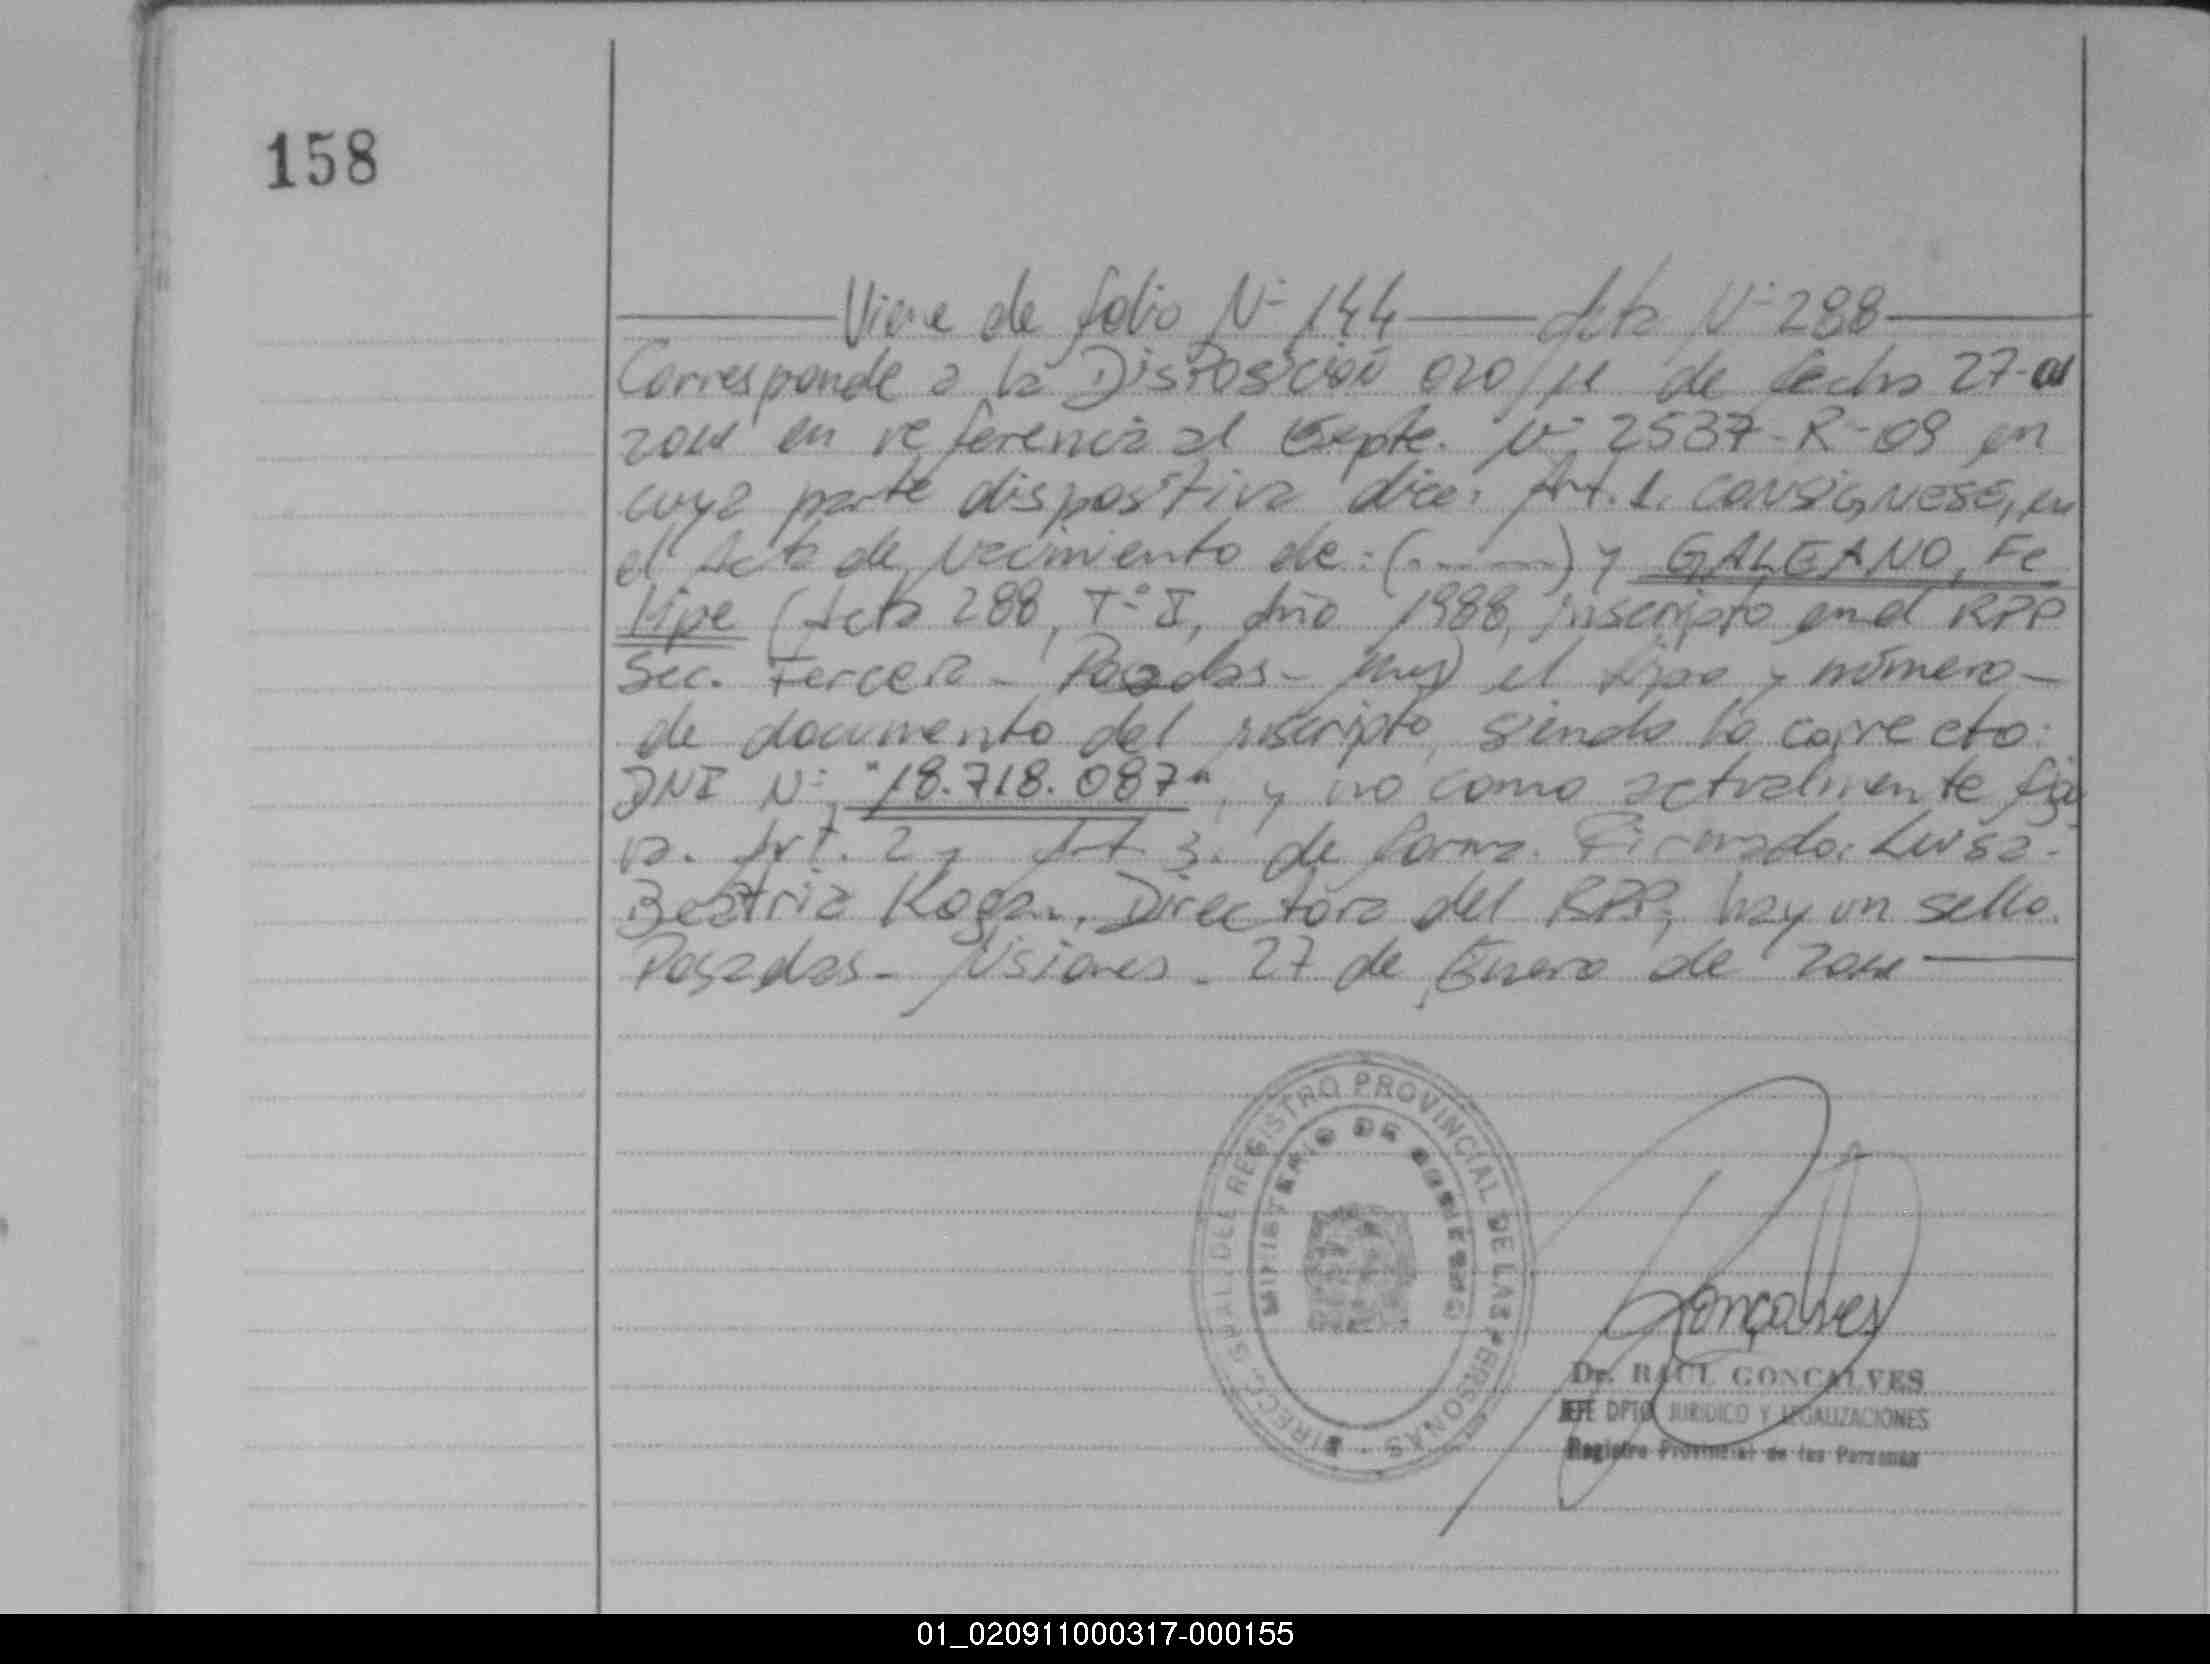 158
Viene de folio Nº 144 — Acta Nº 288
Corresponde a la Disposición 020/11 de fecha 27-01
2011 en referencia al Expte. Nº 2537-R-09 en
cuya parte dispositiva dice: Art. 1. CONSIGNESE, en
el Acta de Nacimiento de: (.......) y GALEANO, Fe
lipe (Acta 288, Tº I, Año 1988, inscripto en el RPP
Sec. Tercera - Posadas - Mnes) el tipo y número -
de documento del inscripto, siendo lo correcto:
DNI Nº "18.718.087", y no como actualmente figu
ra. Art. 2 y Art 3. de forma. Firmado: Luisa -
Beatriz Kogan, Directora del RPP, hay un sello.
Posadas - Misiones - 27 de Enero de 2011
DIREC. GRAL. DEL REGISTRO PROVINCIAL DE LAS PERSONAS -
MINISTERIO DE GOBIERNO
Gonçalves
Dr. RAUL GONCALVES
JEFE DPTO JURIDICO Y LEGALIZACIONES
Registro Provincial de las Personas
01_020911000317-000155